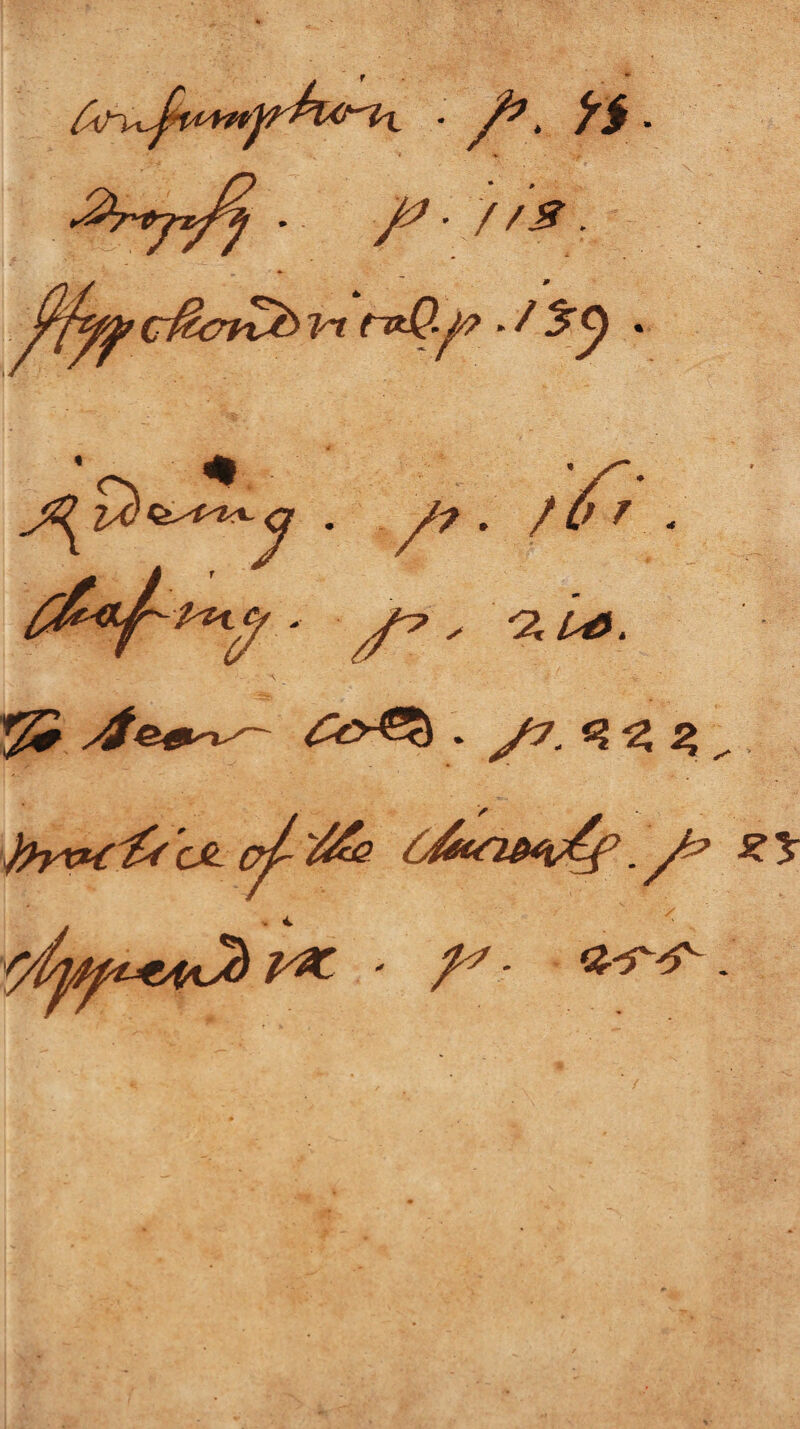 Consumption . p. 75.
Dropsy . p. 118.
Hypchondrical. p. 139.
Rideing . p. 161.
Chafing . p. 210.
To bear cold . p. 222.
practice of the Antients . p 23
Appendix . p. 255.